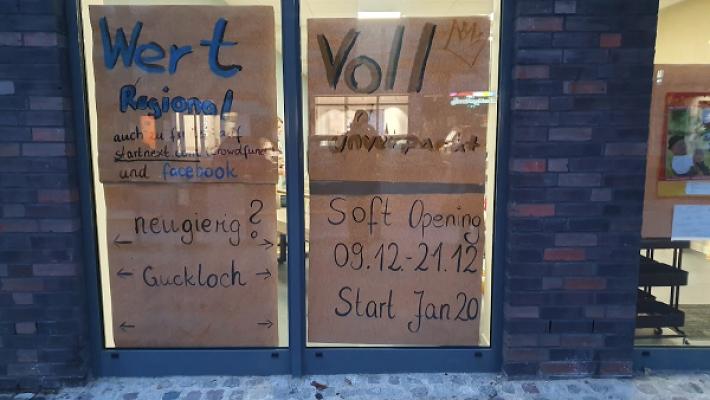 Wert
Regional
auch zu finden auf
startnext.com Crowdfund
und facebook
neugierig?
Guckloch
Voll
unverpackt
Soft Opening
09.12.-21.12
Start Jan 20